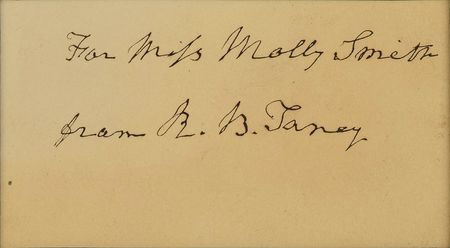 For Miss Molly Smith
from R. B. Taney